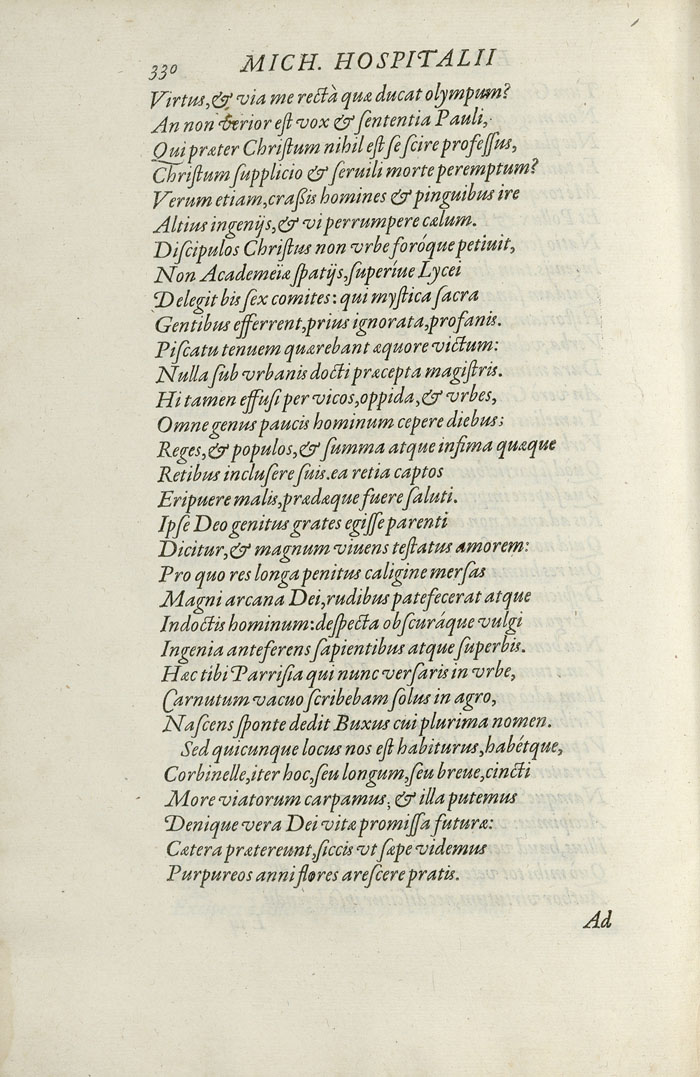 330 MICH. HOSPITALII
Virtus,& via me rectà quæ ducat olympum?
An non verior eſt vox & ſententia Pauli,
Qui præter Chriſtum nihil eſt ſe ſcire profeſſus,
Chriſtum ſupplicio & ſeruili morte peremptum?
Verum etiam,craßis homines & pinguibus ire
Altius ingenijs,& vi perrumpere cælum.
Diſcipulos Chriſtus non vrbe foróque petiuit,
Non Academeïæ ſpatijs,ſuperíue Lycei
Delegit bis ſex comites: qui myſtica ſacra
Gentibus efferrent,prius ignorata,profanis.
Piſcatu tenuem quærebant æquore victum:
Nulla ſub vrbanis docti præcepta magiſtris.
Hi tamen effuſi per vicos,oppida,& vrbes,
Omne genus paucis hominum cepere diebus;
Reges,& populos,& ſumma atque infima quæque
Retibus incluſere ſuis.ea retia captos
Eripuere malis,prædæque fuere ſaluti.
Ipſe Deo genitus grates egiſſe parenti
Dicitur,& magnum viuens teſtatus amorem:
Pro quo res longa penitus caligine merſas
Magni arcana Dei,rudibus patefecerat atque
Indoctis hominum:deſpecta obſcuráque vulgi
Ingenia anteferens ſapientibus atque ſuperbis.
Hæc tibi Parriſia qui nunc verſaris in vrbe,
Carnutum vacuo ſcribebam ſolus in agro,
Naſcens ſponte dedit Buxus cui plurima nomen.
Sed quicunque locus nos eſt habiturus,habétque,
Corbinelle,iter hoc,ſeu longum,ſeu breue,cincti
More viatorum carpamus; & illa putemus
Denique vera Dei vitæ promiſſa futuræ:
Cætera prætereunt,ſiccis vt ſæpe videmus
Purpureos anni flores areſcere pratis.
Ad